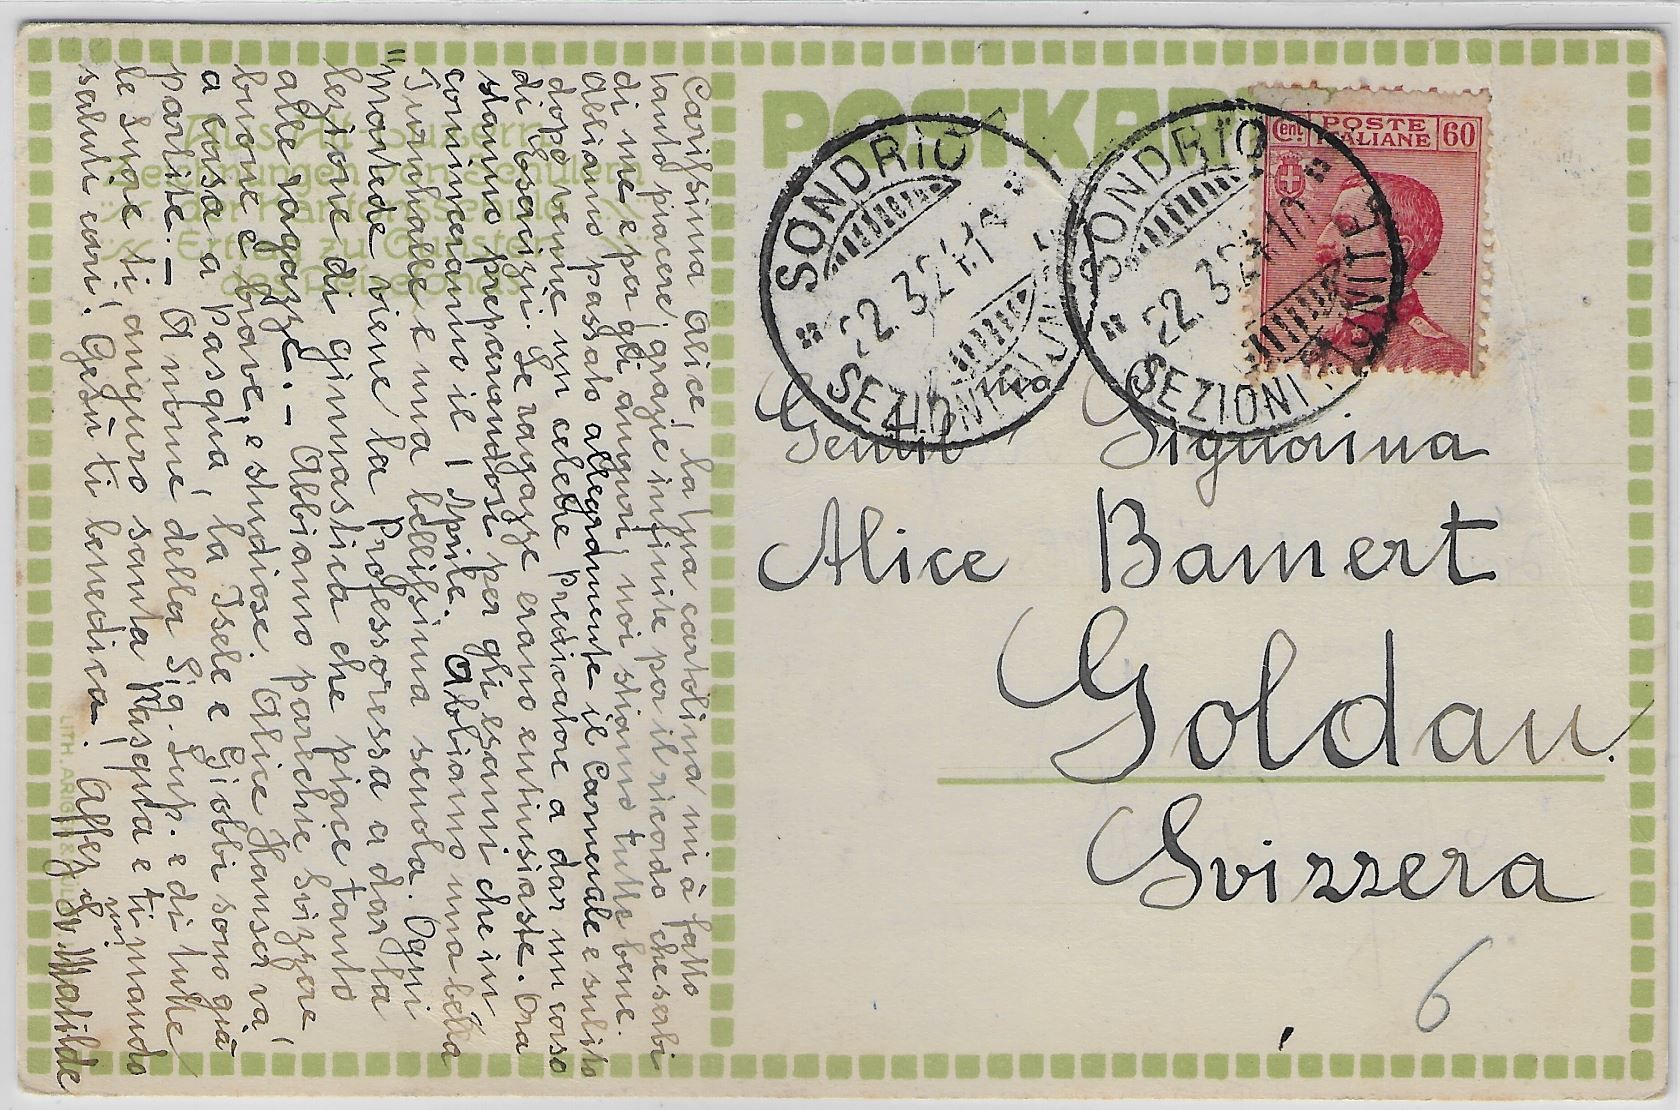 Carissima Alice! La tua cartolina mi à fatto
tanto piacere, grazie infinite per il ricordo che serbi
di me e per gli auguri, noi stiamo tutte bene.
Abbiamo passato allegramente il Carnevale e subito
dopo venne un celebre predicatore a dar un corso
di Esercizii. Le ragazze erano entusiaste. Ora
stanno preparandosi per gli esami che in
cominceranno il 1 Aprile. Abbiamo una bella
Turnhalle e una bellissima scuola. Ogni
"Montede viene la Professoressa a dar la
lezione di ginnastica che piace tanto
alle ragazze. - Abbiamo parecchie Svizzere
buone e brave, e studiose. Alice Hauser và
a casa a Pasqua, la Isele e Giobbi sono già
partite. - A nome della Sig. Sup. e di tutte
le Suore ti auguro santa Pasqua e ti mando
saluti cari! Gesù ti benedica! Affez mi
Sr. Matilde
Aus Alt Luzern
Zeichnungen von Schülern
der Kantonsschule
Ertrag zu Gunsten
des Reisefonds
LITH. ARIG
POSTKAR
SONDRIO
22.3.24
SEZIONI RIUNITE
SONDRIO
22.3.24-10
SEZIONI RIUNITE
Cent. POSTE ITALIANE 60
Gentil.ma Signorina
Alice Bamert
Goldau.
Svizzera
6